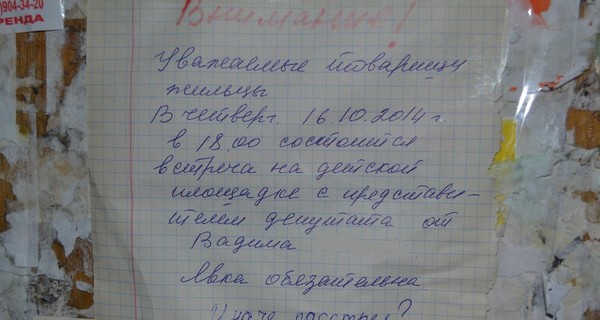 )904-34-20
РЕНДА
Внимание!
Уважаемые товарищи
жильцы
В четверг 16.10.2014 г.
в 18.00 состоится
встреча на детской
площадке с представи-
телем депутата от
Вадима
Явка обязательна.
Иначе расстрел?